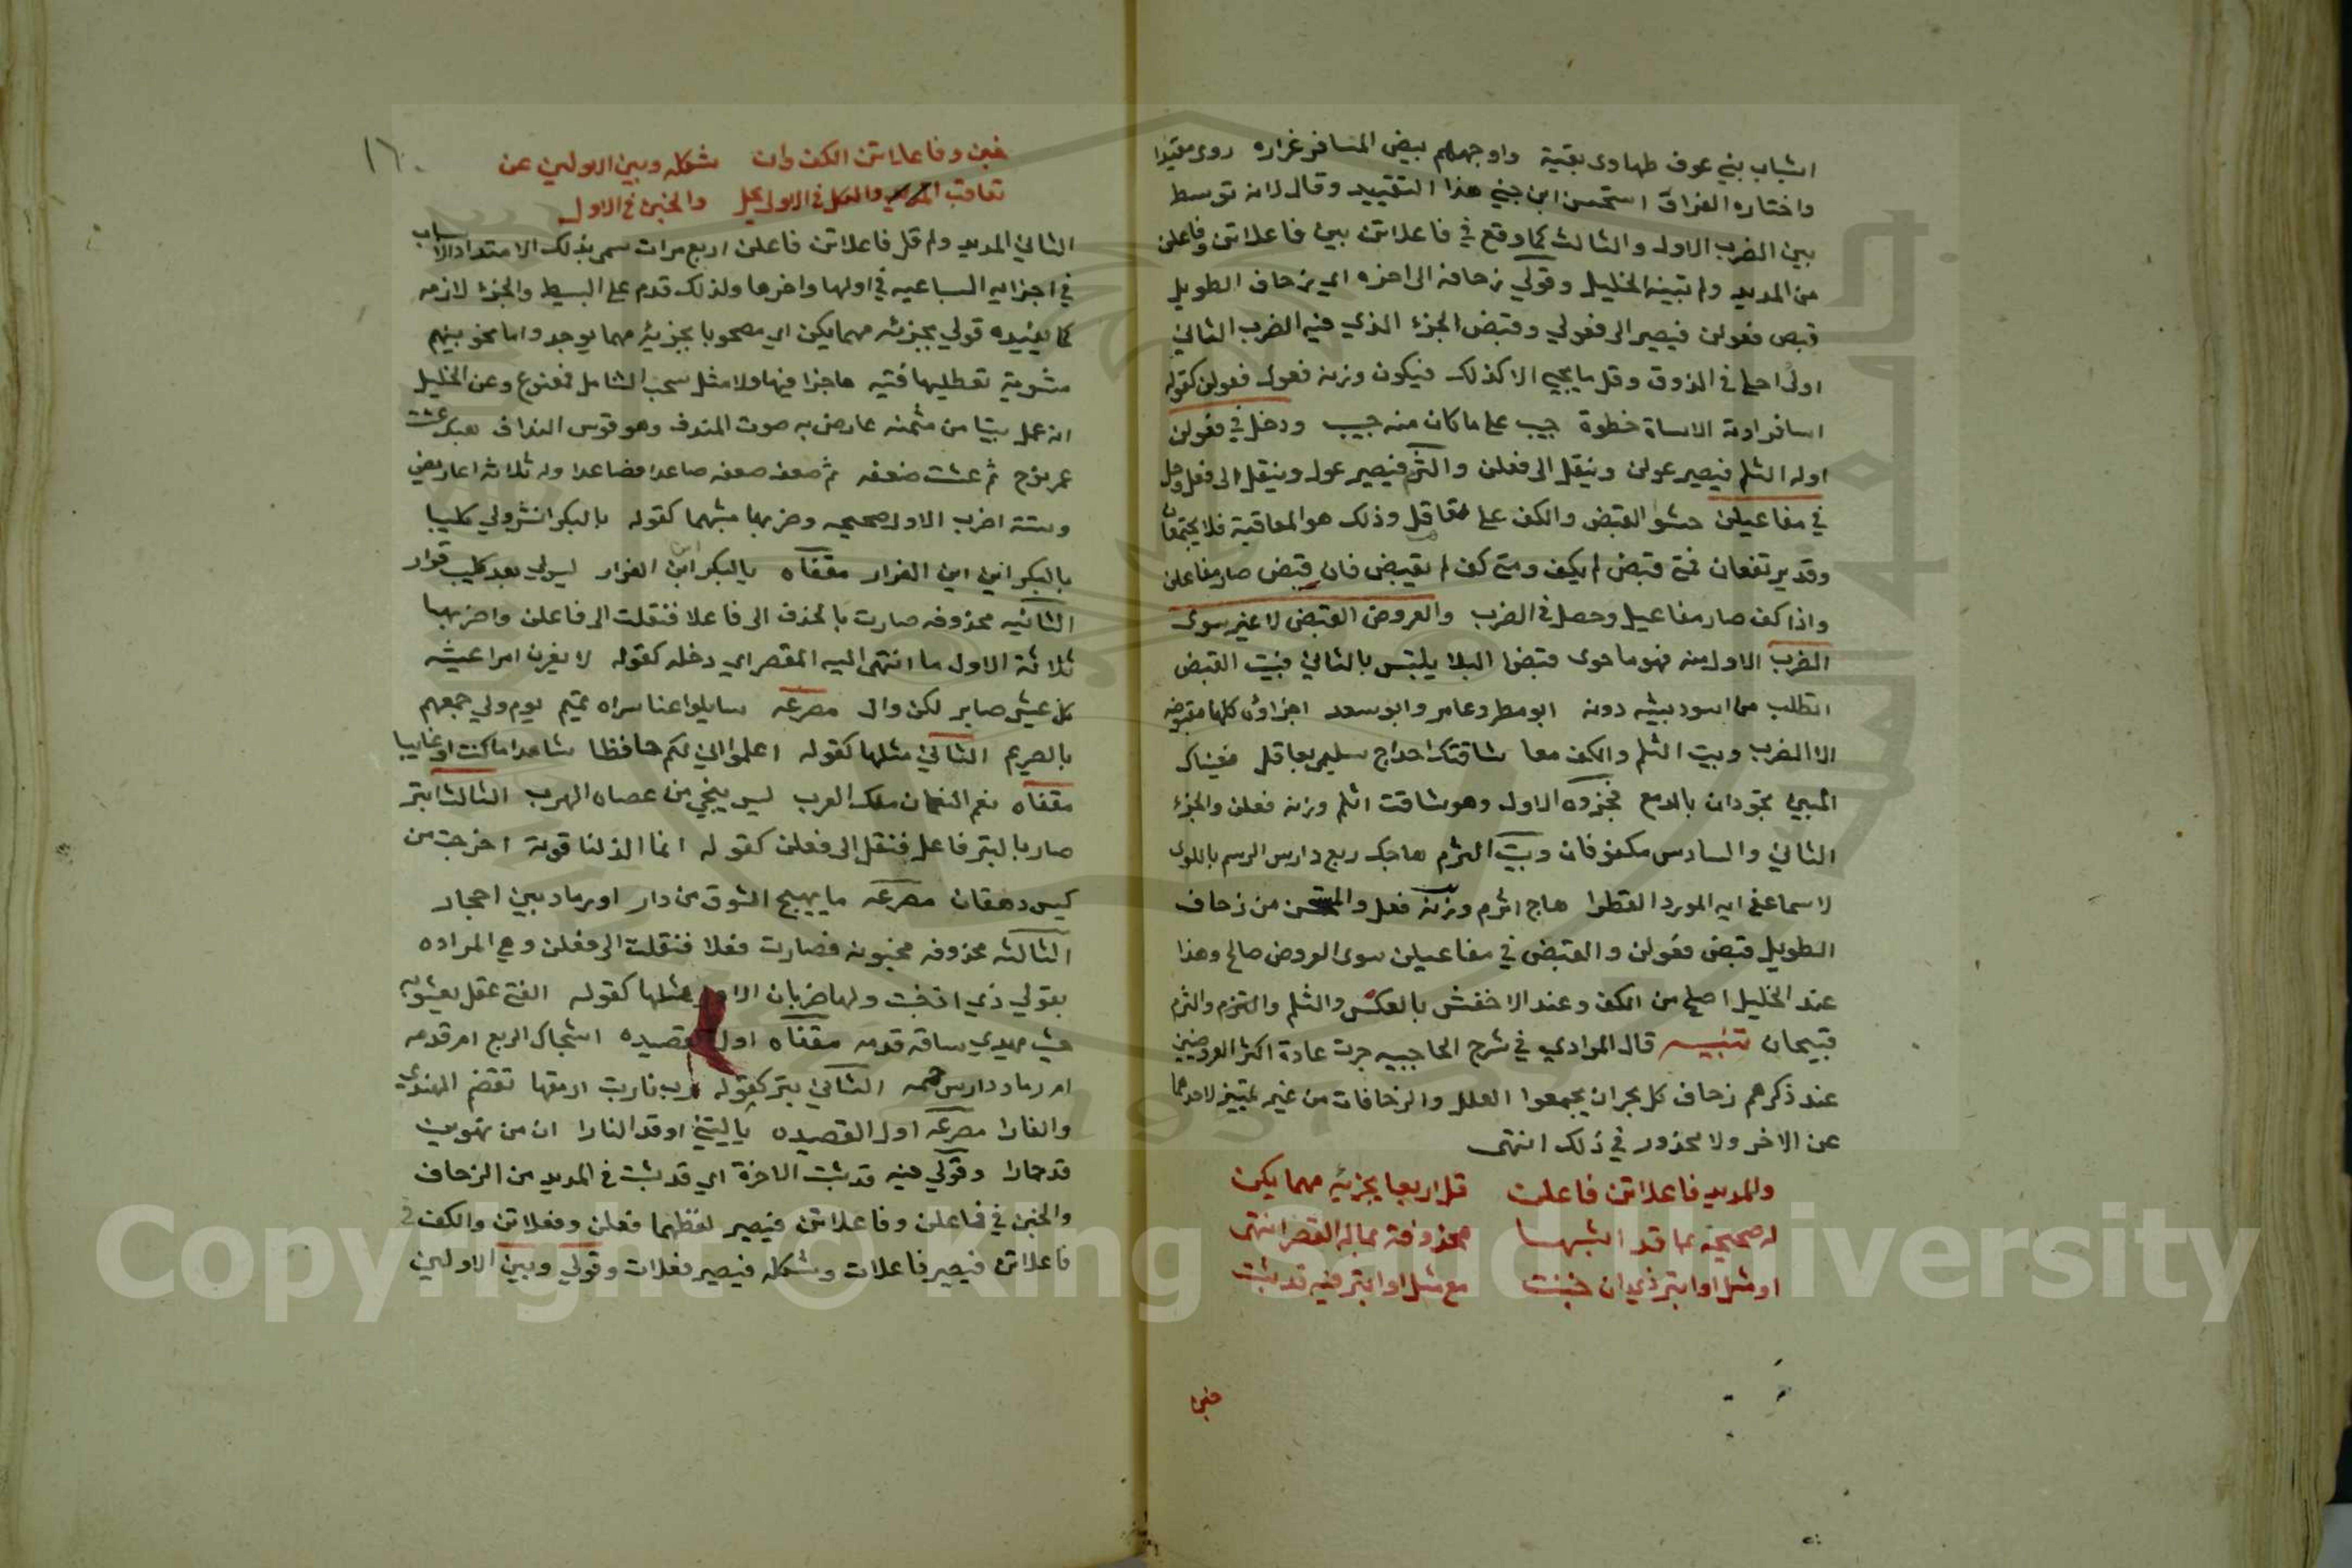 الثياب بني عوف طهارى نقية واوجههم بيض المسافر غراره روى مقيدا
واختاره الفراق استحسن ابن جني هذا التقييد وقال لانه توسط
بين الضرب الاول والثالث كما وقع في فاعلاتن بين فاعلاتن وفاعلن
من المديد ولم تبينه الخليل وقولي زحافه الى اخره اي زحاف الطويل
قبض فعولن فيصير الى فعولي وقبض الجزء الذي فيه الضرب الثاني
اولى احلى في الذوق وقل ما يجي الا كذلك فيكون وزنه فعول فعولن كقوله
اسافرادته الاساة خطوة جيب على ما كان منه جيب ودخل في فعولن
اوله الثلم فيصير عولن وينقل الى فعلن والثرم فيصير عول وينقل الى فعل وحل
في مفاعيلن حشوا القبض والكف على تعاقل وذلك هو المعاقبة فلا يجتمعان
وقد يرتفعان فمتى قبض لم يكف ومتى كف لم يقبض فان قبض صار مفاعلن
واذا كف صار مفاعيل وحصل في الضرب والعروض القبض لا غير سوى
الضرب الاول منه فهو ما حوى قبضا البلا يلتبس بالثاني فبيت القبض
اتطلب من اسود بيشه دونه ابو مطر وعامر وابو سعد اجزاؤه كلها مقبوضه
الا الضرب وبيت الثلم والكف معا شاقتك احداج سليمى بعاقل فعيناك
للبين تجودان بالدمع فجزوه الاول وهو شاقت اثلم وزنه فعلن والجزء
الثاني والسادس مكفوفان وبيت الثرم هاجك ربع دارس الرسم باللوى
لاسما عفى ايه المورد القطرا هاج اثرم وزنه فعل والمستحسن من زحاف
الطويل قبض فعولن والقبض في مفاعيلن سوى العروض صالح وهذا
عند الخليل اصلح من الكف وعند الاخفش بالعكس والثلم والثرم والثرم
قبيحان تنبيه قال المرادي في شرح الحاجبيه جرت عادة اكثر العروضيين
عند ذكرهم زحاف كل بحر ان يجمعوا العلل والزحافات من غير تمييز لاحدهما
عن الاخر ولا محذور في ذلك انتهى
والمديد فاعلاتن فاعلن قل اربعا بجزئه مهما يكن
له صحيحة بما قد اشبهها محذوفة بماله القصر انتهى
او مثل او ابتر ذي ان خبنت مع مثل او ابتر فيه قد ثبت
خبن
١٦
خبن وفاعلاتن الكف وان شكله وبين الاولين عن
تعاقب والعكل في الاول يحل والخبن في الاول
الثاني المديد وله قل فاعلاتن فاعلن اربع مرات سمى بذلك الامتداد الاسباب
في اجزايه السباعيه في اولها واخرها ولذلك قدم على البسيط والجزء لازمه
كما يفيده قولي بجزئه مهما يكن اي مصحوبا بجزئه مهما يوجد واما نحو بينهم
مشوية تعطليها فتيه هاجزا فيها ولا مثل سحب الشامل فمنوع وعن الخليل
انه عمل بيتا من مثمنه عارض به صوت المندف وهو قوس النداف
عمر نوح ثم عشت ضعفه ثم ضعف ضعفه صاعدا فضاعدا وله ثلاثة اعاريض
وستة اضرب الاول صحيحه وضربها مثلهما كقوله يالبكر انشرولي كليبا
يالبكر اين اين الفرار مقفاه يالبكر اين الفرار ليولي بعد كليب قرار
الثانيه محذوفه صارت بالحذف الى فاعلا فنقلت الى فاعلن واضربها
ثلاثة الاول ما انتهى اليه القصر اي دخله كقوله لا يغرن امرا عيشه
كل عيش صاير لكن وال مصرعه سايلوا عنا سراه تميم يوم ولي جمعهم
بالصريم الثاني مثلها كقوله اعلموا اني لكم حافظا شاهدا ما كنت او غايبا
مقفاه نعم النعمان ملك العرب ليس ينجي من عصاه الهرب الثالث ابتر
صار بالبتر فاعل فنقل الى فعلن كقوله انما الذلفا قوته اخرجت من
كيس دهقان مصرعه ما يهيج الشوق من دار او رماد بين احجار
الثالثه محذوفه مخبونه فصارت فعلا فنقلت الى فعلن وهي المراده
بقولي ذي ان خبنت ولها ضربان الاول مثلها كقوله الفتى عقل يعيش به
حيث يهدي ساقه قدمه مقفاه اول القصيده اشجاك الربع ام قدمه
ام رماد دارس حممه الثاني بتر كقوله رب نار بت ارمقها تقضم الهندي
والغارا مصرعه اول القصيده ياليتني اوقدا النارا ان من تهوين
قد حارا وقولي فيه قد ثبت الاخرة اي قد ثبت في المديد من الزحاف
والخبن في فاعلن وفاعلاتن فيصير لفظهما فعلن وفعلاتن والكف في
فاعلاتن فيصير فاعلات وشكله فيصير فعلات وقولي وبين الاولين
Copyright © King Saud University
1957